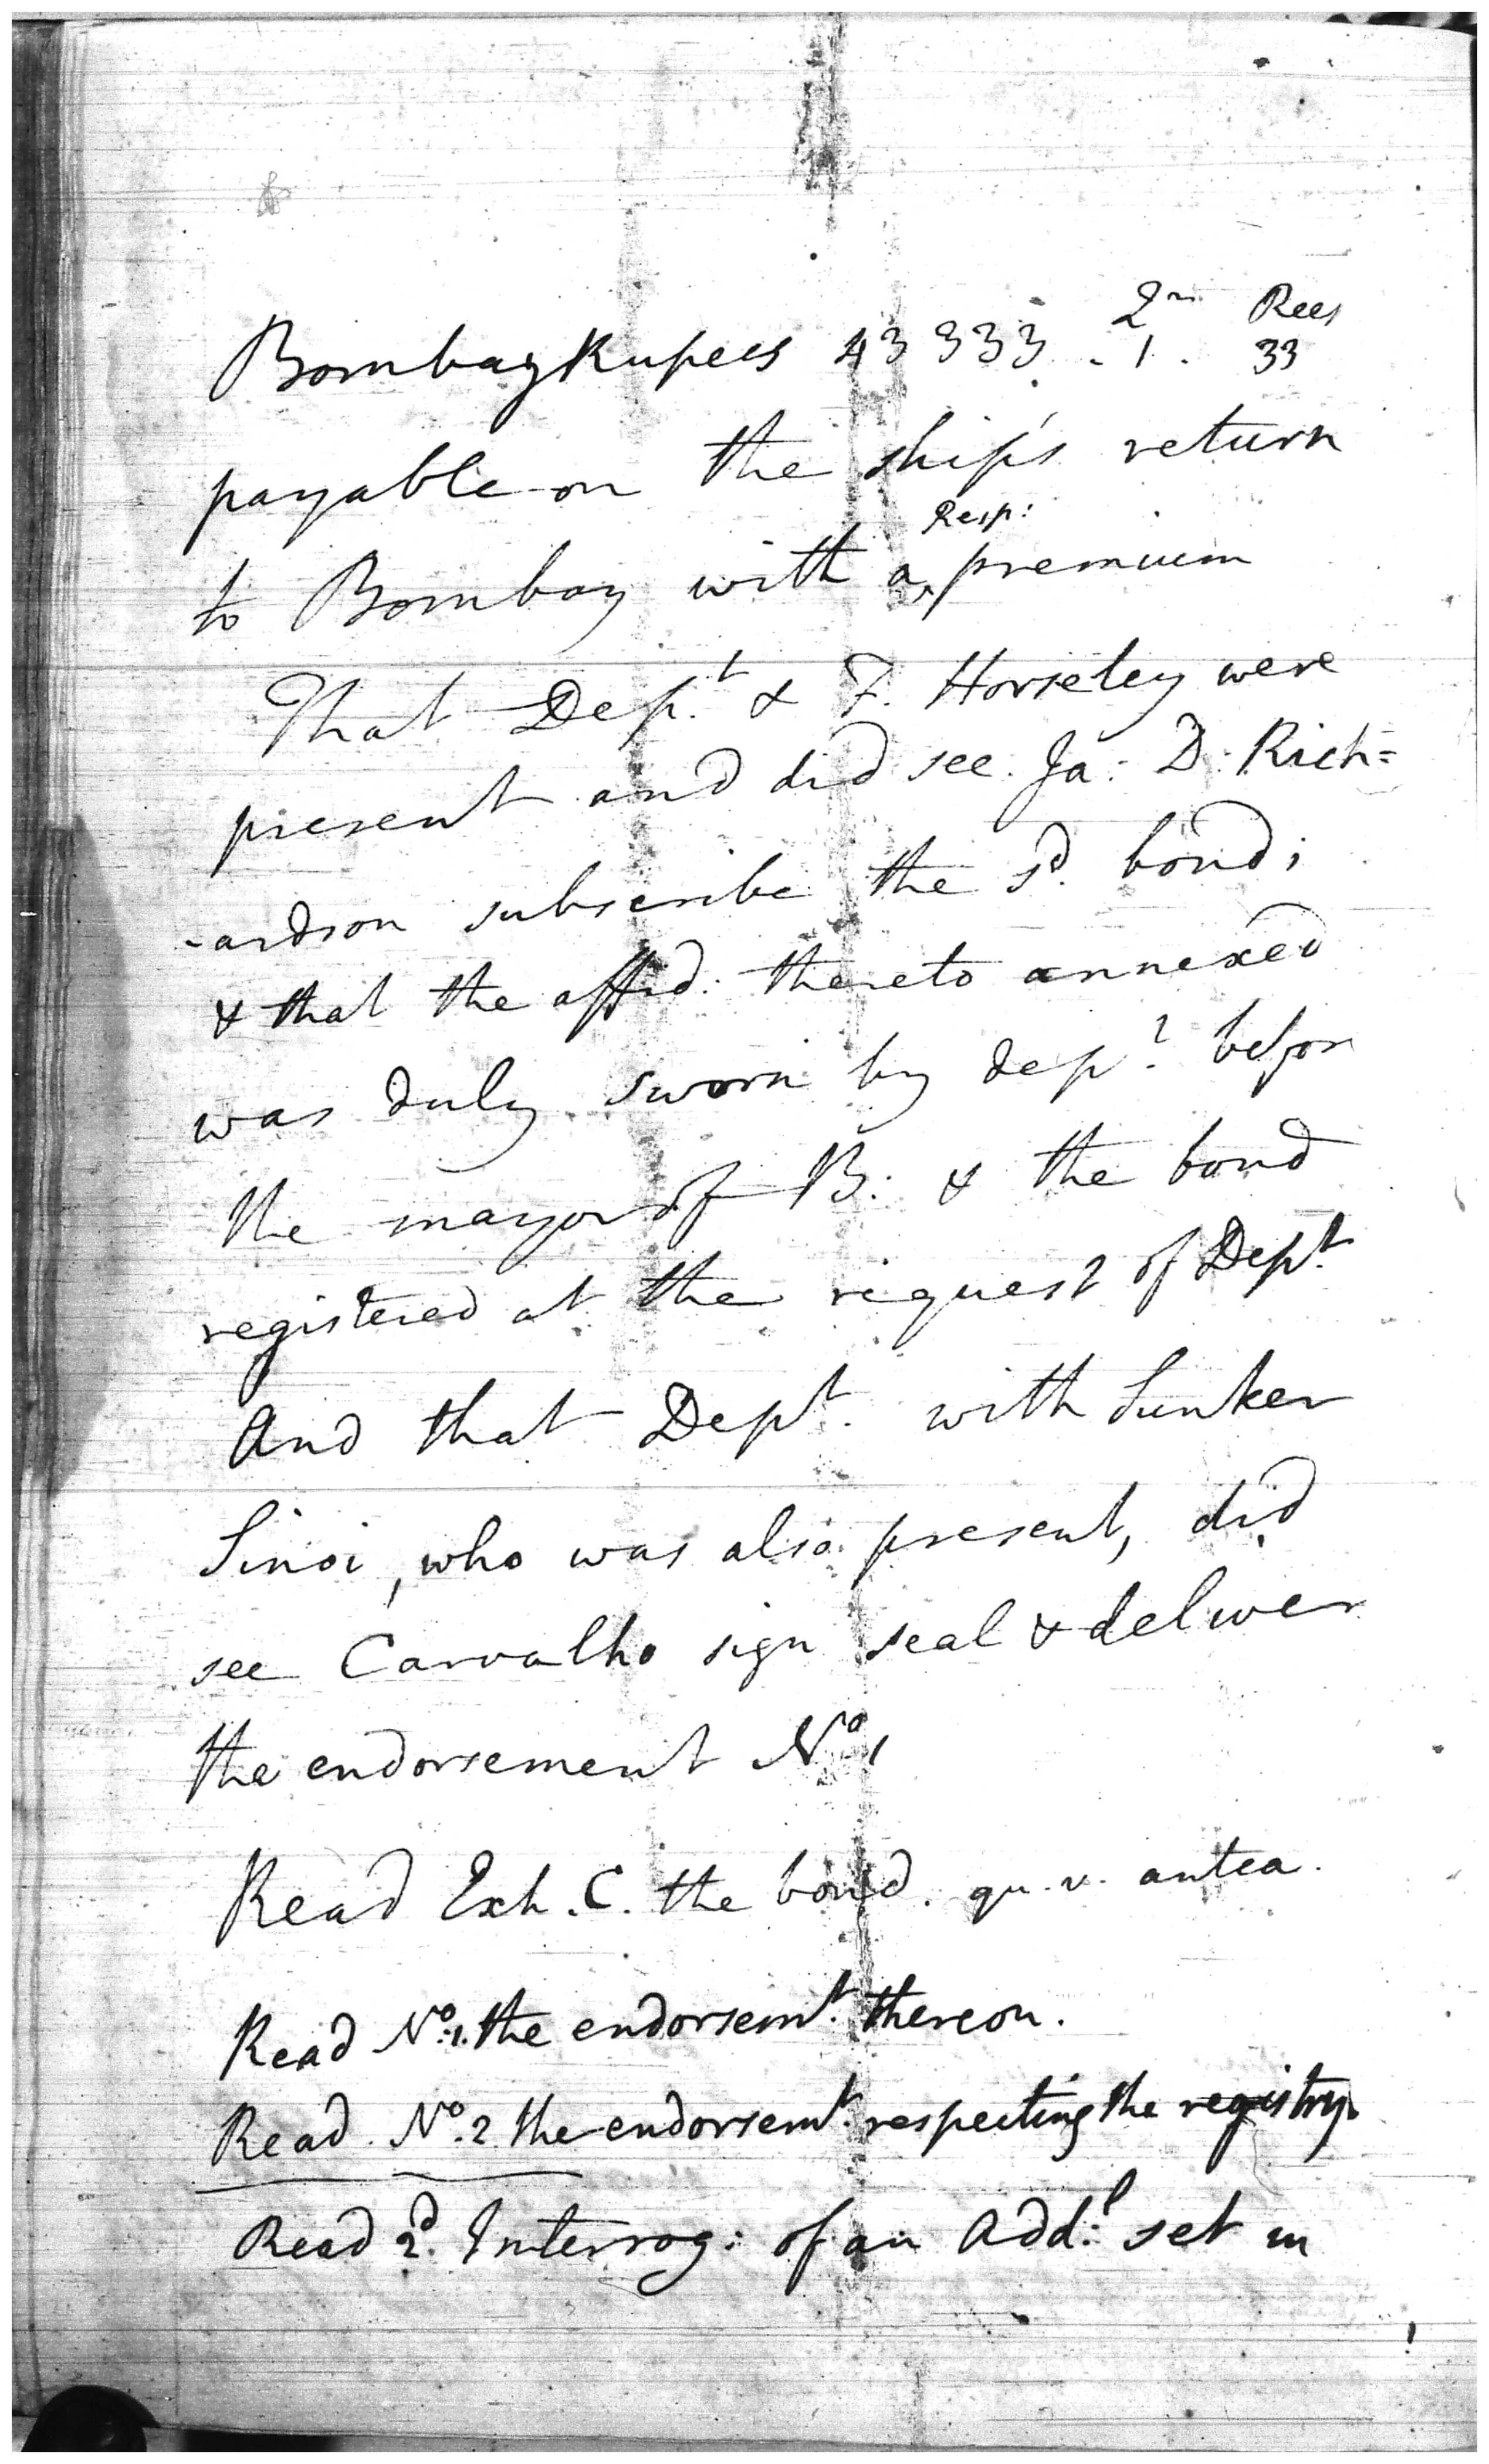 Qrs Rees
Bombay Rupees 43333 . 1 . 33
payable on the ship's return
Resp:
to Bombay with a ‸ premium
That Dept. & F. Horseley were
present and did see Ja: D: Rich=
-ardson subscribe the sd. bond;
& that the affid: thereto annexed
was duly sworn by dept. before
the mayor of B: & the bond
registered at the request of Dept.
And that Dept. with Sunker
Sinoi, who was also present, did
see Carvalho sign seal & deliver
the endorsement No. 1
Read Exh. C. the bond. qu. v. antea.
Read No. 1. the endorsemt. thereon.
Read No. 2 the endorsemt. respecting the registry.
Read 2d. Interrog: of an Addl: set in